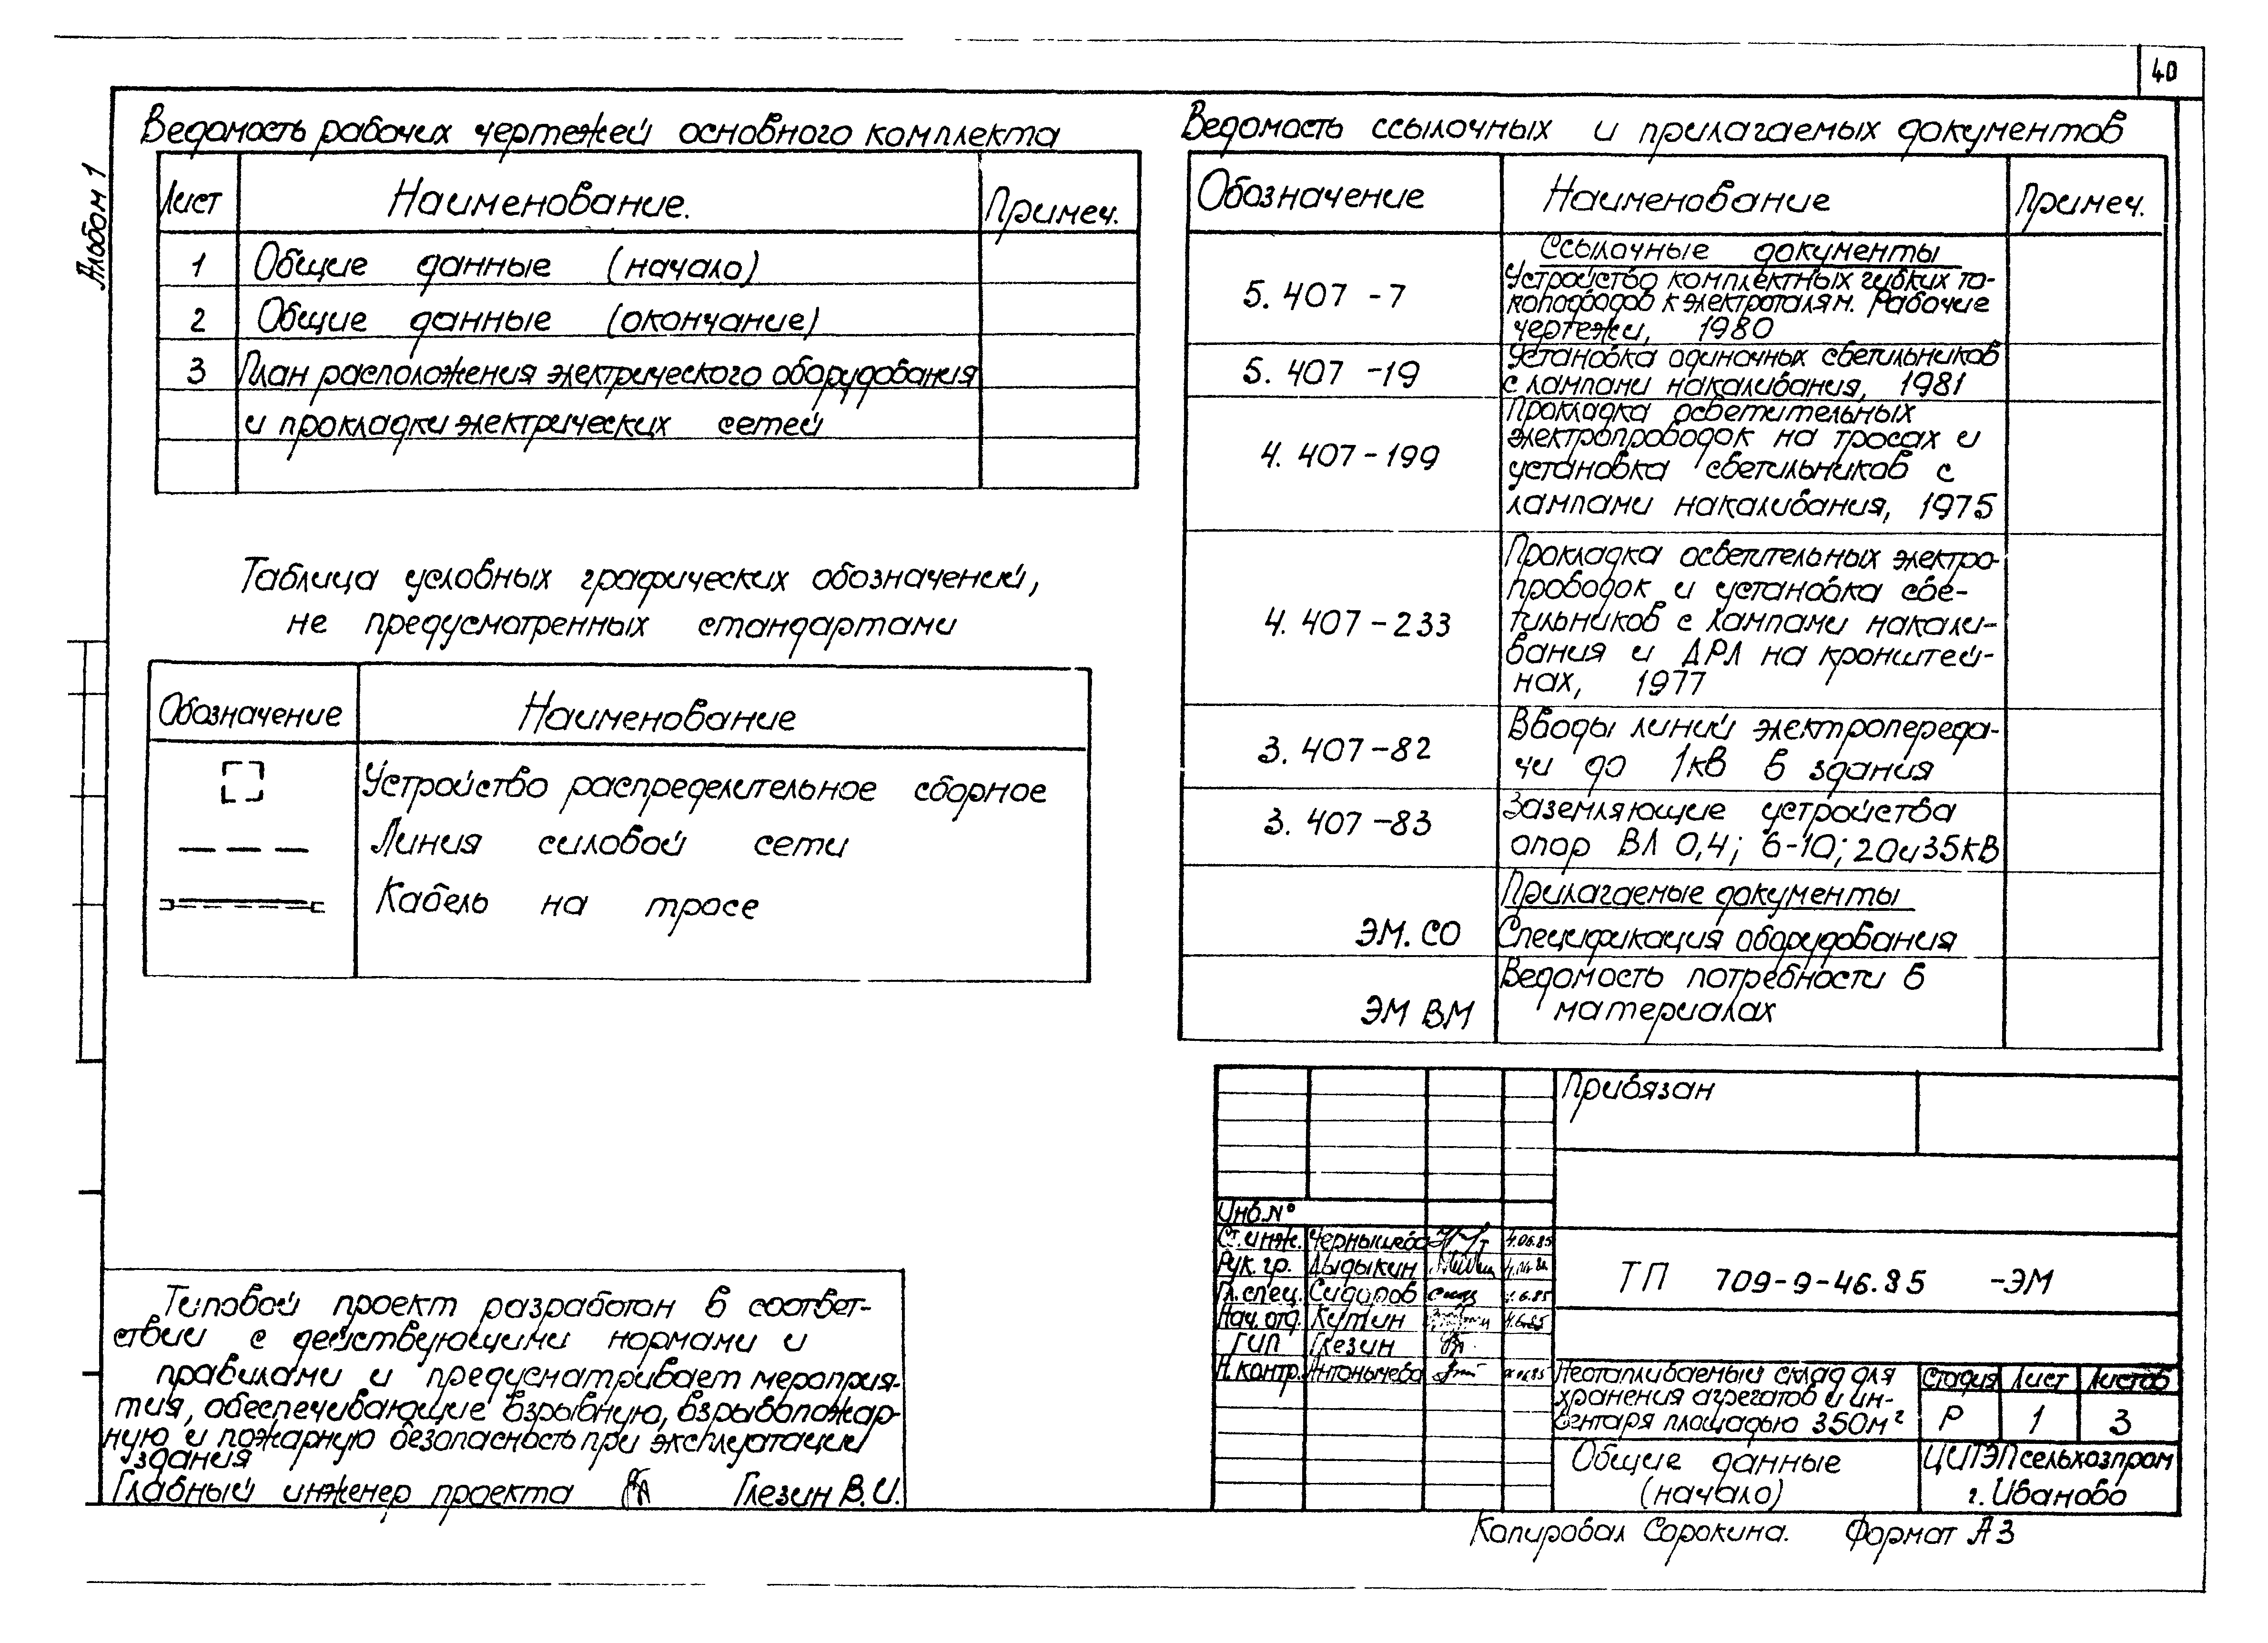 40
Альбом 1
Ведомость рабочих чертежей основного комплекта
Лист Наименование. Примеч.
1 Общие данные (начало)
2 Общие данные (окончание)
3 План расположения электрического оборудования
и прокладки электрических сетей
Таблица условных графических обозначений,
не предусмотренных стандартами
Обозначение Наименование
Устройство распределительное сборное
Линия силовой сети
Кабель на тросе
Типовой проект разработан в соответ-
ствии с действующими нормами и
правилами и предусматривает мероприя-
тия, обеспечивающие взрывную, взрывопожар-
ную и пожарную безопасность при эксплуатации
здания
Главный инженер проекта Глезин В.И.
Ведомость ссылочных и прилагаемых документов
Обозначение Наименование Примеч.
Ссылочные документы
5.407-7 Устройство комплектных гибких то-
коподводов к электроталям. Рабочие
чертежи, 1980
5.407-19 Установка одиночных светильников
с лампами накаливания, 1981
4.407-199 Прокладка осветительных
электропроводок на тросах и
установка светильников с
лампами накаливания, 1975
4.407-233 Прокладка осветительных электро-
проводок и установка све-
тильников с лампами накали-
вания и ДРЛ на кронштей-
нах, 1977
3.407-82 Вводы линий электропереда-
чи до 1кв в здания
3.407-83 Заземляющие устройства
опор ВЛ 0,4; 6-10; 20 и 35кВ
Прилагаемые документы
ЭМ.СО Спецификация оборудования
ЭМ ВМ Ведомость потребности в
материалах
Привязан
Инв.№
Ст.инж. Чернышева 4.06.85
Рук.гр. Дыдыкин
Гл.спец. Сидоров 4.6.85
Нач.отд. Кутин 4.6.85
ГИП Глезин
Н.контр. Антонычева
ТП 709-9-46.85 -ЭМ
Неотапливаемый склад для
хранения агрегатов и ин-
вентаря площадью 350м²
Стадия Лист Листов
Р 1 3
Общие данные
(начало)
ЦИТЭПсельхозпром
г. Иваново
Копировал Сорокина. Формат А3